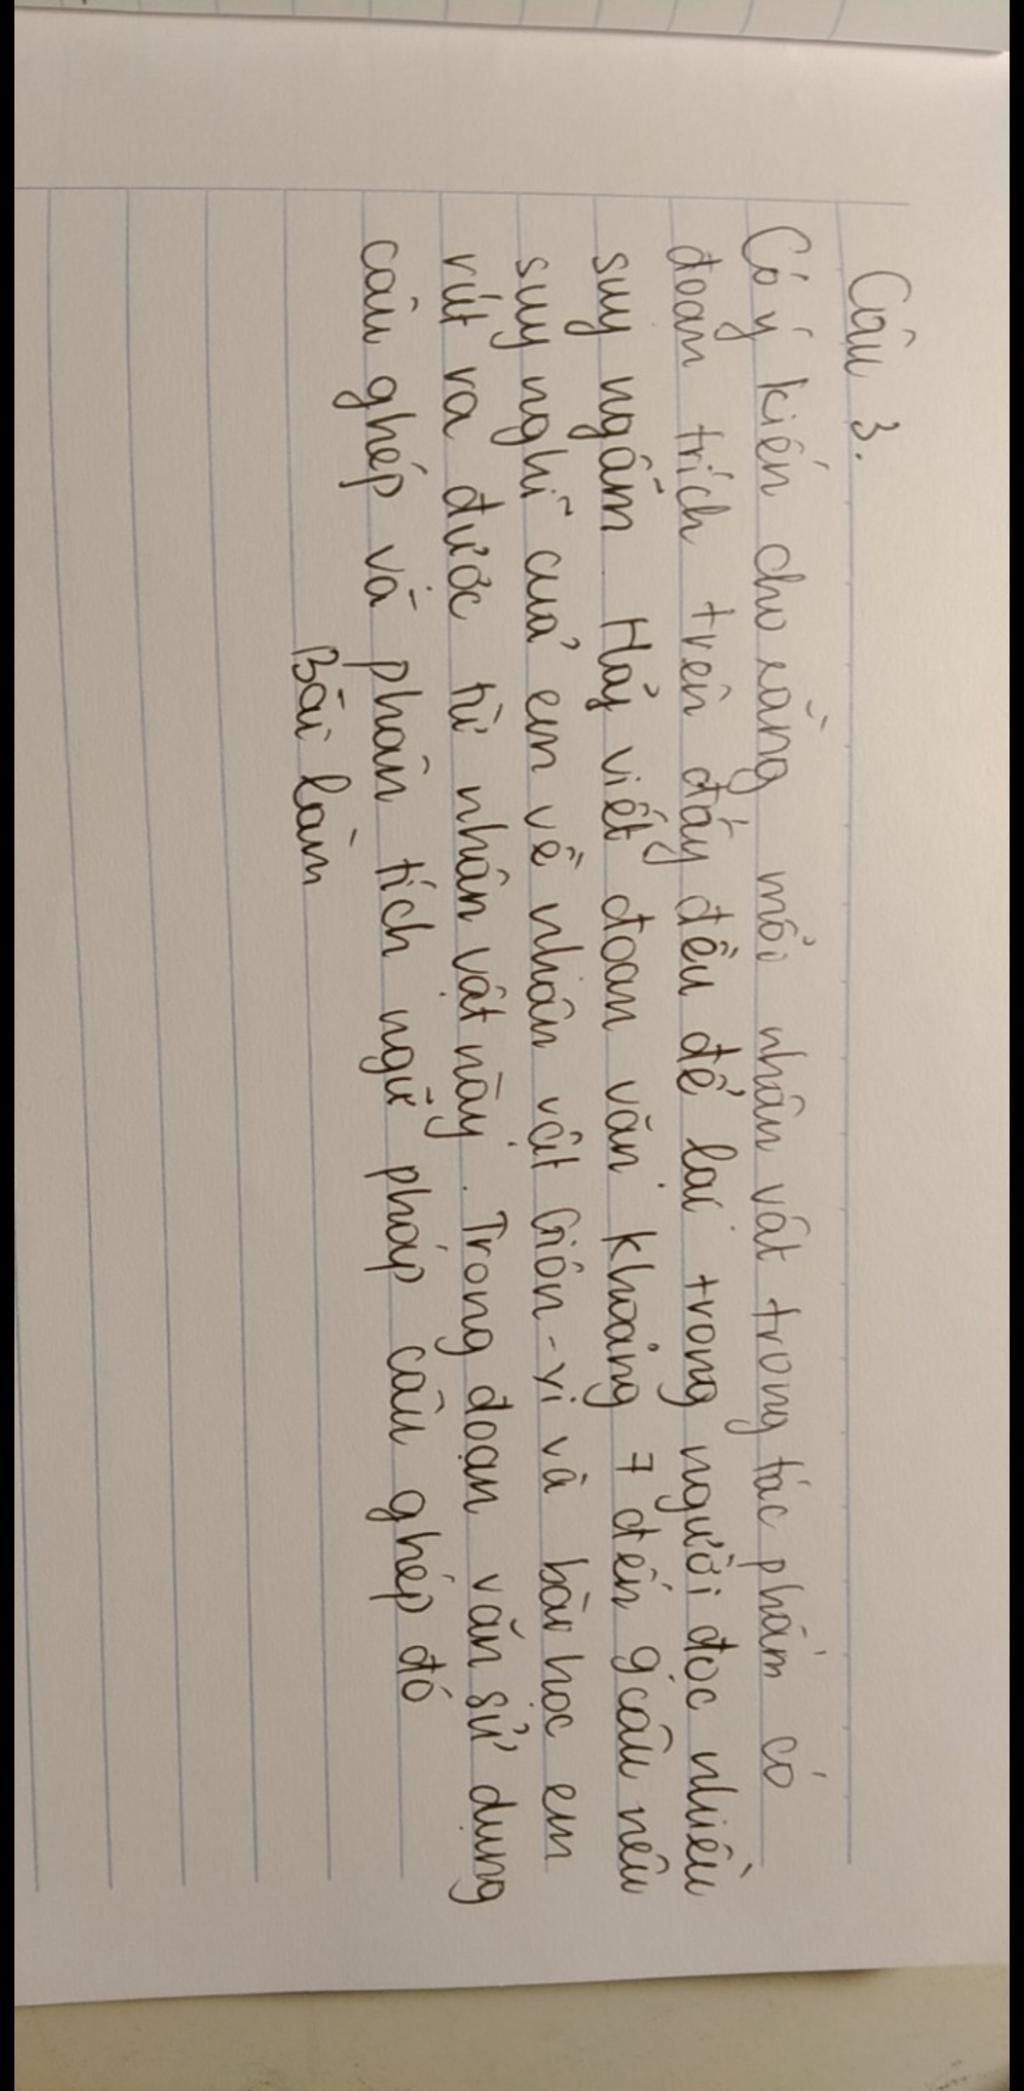 Câu 3.
Có ý kiến cho rằng mỗi nhân vật trong tác phẩm có
đoạn trích trên đây đều để lại trong người đọc nhiều
suy ngẫm. Hãy viết đoạn văn khoảng 7 đến 9 câu nêu
suy nghĩ của em về nhân vật Giôn-xi và bài học em
rút ra được từ nhân vật này. Trong đoạn văn sử dụng
câu ghép và phân tích ngữ pháp câu ghép đó
Bài làm